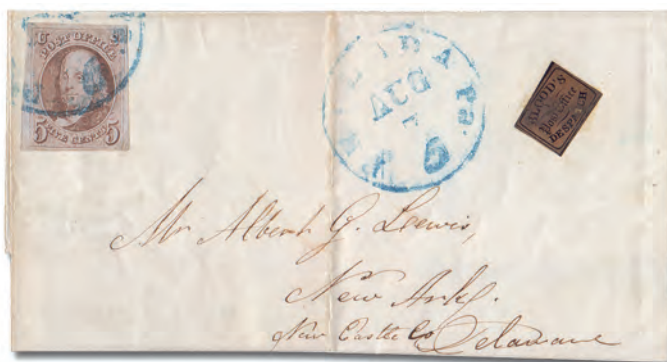 U S
POST OFFICE
5 FIVE CENTS 5
PHILADA Pa.
AUG
7
5
BLOOD'S
Post Office
DESPATCH
Mr Albert G. Lewis,
New Ark,
New Castle Co Delaware